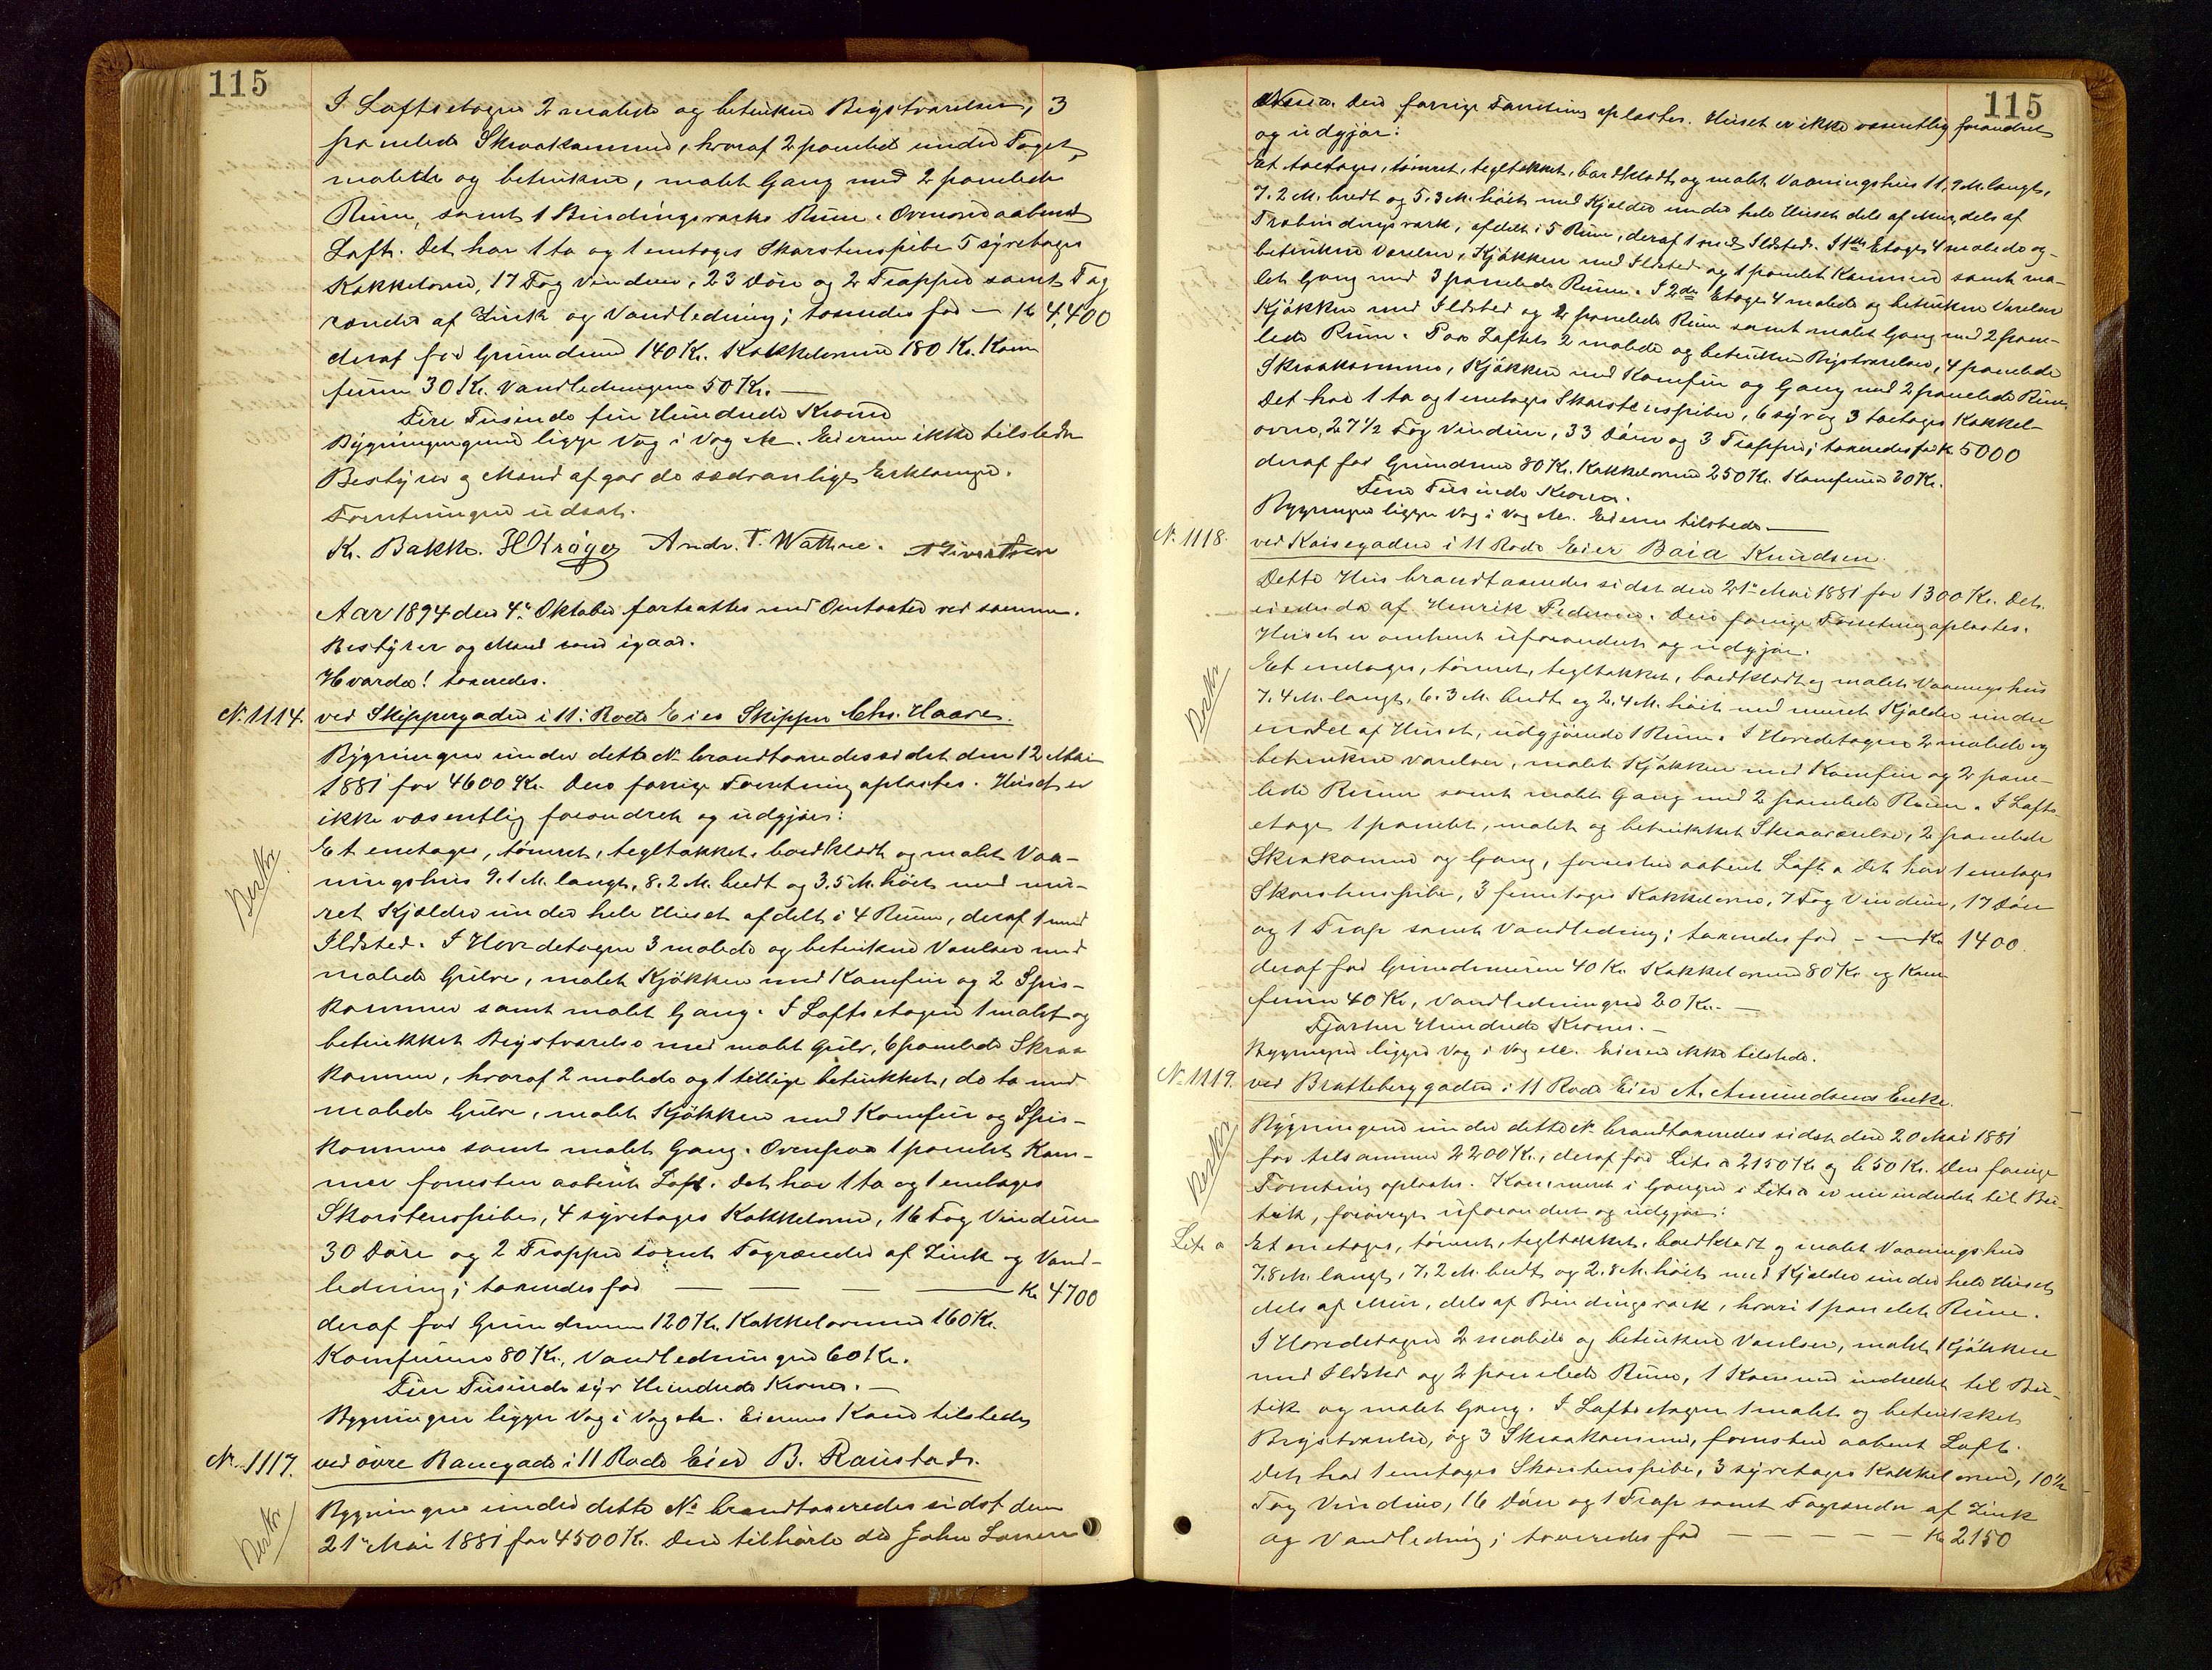 115
I Loftsetagen 2 malede og betrukne Brystværelser, 3
panelede Skraakammere, hvoraf 2 panelede under Taget,
malede og betrukne, malet Gang med 2 panelede
Rum, samt 1 Bindingsværks Rum. Ovenover aabent
Loft. Det har 1 to og 1 enetages Skorstenspibe 5 syvetages
Kakkelovne, 17 Fag Vinduer, 23 Döre og 2 Trapper samt Tag
render af Zink og Vandledning; taxeredes for — K 4,400
deraf for Grundmur 140 Kr. Kakkelovnene 180 Kr. Kom
furene 30 Kr. Vandledningen 50 Kr. —
Fire Tusinde fire Hundrede Kroner
Bygningerne ligge Væg i Væg etc. Eieren ikke tilstede
Bestyrer og Mænd afgav de sædvanlige Erklæringer.
Forretningen udsat.
Kr. Bakke. H Kröger Andr. T. Wathne. A Sivertsen
Aar 1894 den 4de Oktober fortsattes med Omtaxter ved samme
Bestyrer og Mænd som igaar.
Hvorda! taxeredes.
No. 1114. ved Skippergaden i 11: Rode Eier Skipper Chr. Haare.
Bygningen under dette No brandtaxeredes sidst den 12 Mai
1881 for 4600 Kr. Den forrige Forretning oplæstes. Huset er
ikke væsentlig forandret og udgjör:
Et enetages, tömret, tegltækket, bordklædt og malet Vaa-
Beskr.
ningshus 9.1 M. langt, 8.2 M. bredt og 3.5 M. höit med mu-
ret Kjælder under hele Huset afdelt i 4 Rum, deraf 1 med
Ildsted. I Hovedetagen 3 malede og betrukne Værelser med
malede Gulve, malet Kjökken med Komfur og 2 Spis-
kammer samt malet Gang. I Loftsetagen 1 malet og
betrukket Brystværelse med malet Gulv, 6 panelede Skraa
kammer, hvoraf 2 malede og 1 tillige betrukket, de to med
malede Gulve, malet Kjökken med Komfur og Spis-
kammer samt malet Gang. Ovenpaa 1 panelet Kam-
mer forresten aabent Loft. Det har 1 to og 1 enetages
Skorstenspiber, 4 syvetages Kakkelovne, 16 Fag Vinduer
30 Döre og 2 Trapper samt Tagrender af Zink og Vand-
ledning; taxeredes for — — — — Kr 4700
deraf for Grundmuren 120 Kr. Kakkelovnene 160 Kr.
Komfurene 80 Kr., Vandledningen 60 Kr.
Fire Tusinde syv Hundrede Kroner. —
Bygningen ligger Væg i Væg etc. Eierens Kone tilstede
No. 1117. ved övre Banegade i 11 Rode Eier B. Raustads.
Bygningen under dette No brandtaxeredes sidst den
Beskr.
21de Mai 1881 for 4500 Kr. Den tilhörte da John Larsen
115
Den forrige Forretning oplæstes. Huset er ikke væsentlig forandret
og udgjör:
Et toetages, tömret, tegltækket, bordklædt og malet Vaaningshus 11,9 M. langt,
7.2 M. bredt og 5.3 M. höit med Kjælder under hele Huset dels af Mur, dels af
Træbindingsværk, afdelt i 5 Rum, deraf 1 med Ildsted. I 1ste Etage 4 malede og
betrukne Værelser, Kjökken med Ildsted og 1 panelet Kammer samt ma-
let Gang med 3 panelede Rum. I 2de Etage 4 malede og betrukne Værelser
Kjökken med Ildsted og 2 panelede Rum samt malet Gang med 2 pane-
lede Rum. Paa Loftet 2 malede og betrukne Brystværelser, 4 panelede
Skraakammere, Kjökken med Komfur og Gang med 2 panelede Rum.
Det har 1 to og 1 enetages Skorstenspiber, 6 syv og 3 toetages Kakkel-
ovne, 27 1/2 Fag Vinduer, 33 Döre og 3 Trapper; taxeredes for K. 5000
deraf for Grundmur 80 Kr. Kakkelovnene 250 Kr. Komfuren 30 Kr.
Fem Tusinde Kroner.
Bygningen ligger Væg i Væg etc. Eieren tilstede. —
No. 1118. ved Kaisegaden i 11 Rode Eier Baia Knudsen.
Dette Hus brandtaxeredes sidst den 21de Mai 1881 for 1300 Kr. Det
eiedes da af Henrik Pedersen. Den forrige Forretning oplæstes.
Huset er omtrent uforandret og udgjör.
Beskr.
Et enetages, tömret, tegltækket, bordklædt og malet Vaaningshus
7.4 M. langt, 6.3 M. bredt og 2.4 M. höit med muret Kjælder under
endel af Huset, udgjörende 1 Rum. I Hovedetagen 2 malede og
betrukne Værelser, malet Kjökken med Komfur og 2 pane-
lede Rum samt malet Gang med 2 panelede Rum. I Lofts
etagen 1 panelet, malet og betrukket Skraaværelse, 2 panelede
Skrakammer og Gang, forresten aabent Loft. Det har 1 enetages
Skorstenspibe, 3 femetages Kakkelovne, 7 Fag Vinduer, 17 Döre
og 1 Trap samt Vandledning; taxeredes for — — Kr 1400
deraf for Grundmuren 40 Kr. Kakkelovnene 80 Kr. og Kom
furen 40 Kr, Vandledningen 20 Kr. —
Fjorten Hundrede Kroner. —
Bygningen ligger Væg i Væg etc. Eieren ikke tilstede.
No. 1119. ved Brattebergaden i 11 Rode Eier A. Amundsens Enke.
Bygningerne under dette No brandtaxeredes sidst den 20 Mai 1881
Beskr
for tilsammen 2200 Kr., deraf for Litr a 2150 Kr og b 50 Kr. Den forrige
Forretning oplæstes. Kammeret i Gangen i Litr a er nu indredet til Bu-
tik, forövrigt uforandret og udgjör:
Litr a Et enetages, tömret, tegltækket, bordklædt og malet Vaaningshus
7.8 M. langt, 7.2 M. bredt og 2.8 M. höit med Kjælder under hele Huset
dels af Mur, dels af Bindingsværk, hvori 1 panelet Rum.
I Hovedetagen 2 malede og betrukne Værelser, malet Kjökken
med Ildsted og 2 panelede Rum, 1 Kammer indredet til Bu-
tik og malet Gang. I Loftsetagen 1 malet og betrukket
Brystværelse, og 3 Skraakammer, forresten aabent Loft.
Det har 1 enetages Skorstenspibe, 3 syvetages Kakkelovne, 10 1/2
Fag Vinduer, 16 Döre og 1 Trap samt Tagrender af Zink
og Vandledning; taxeredes for — — — — — Kr 2150